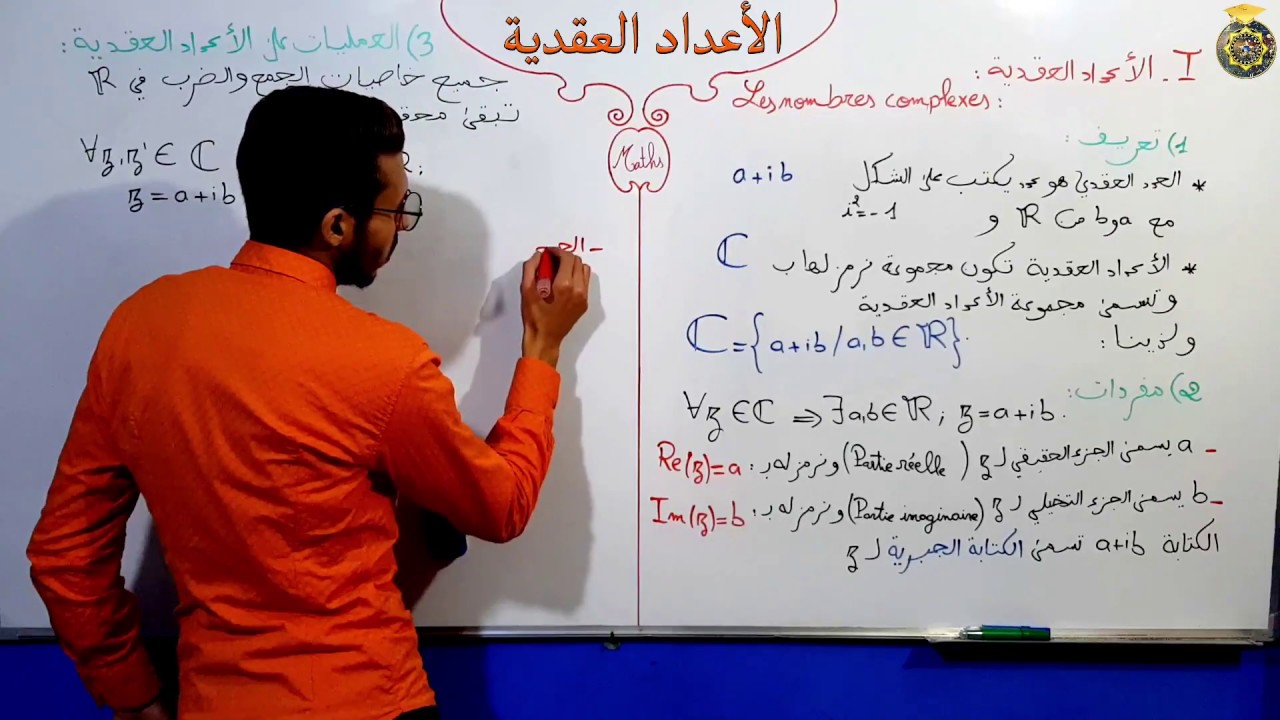 الأعداد العقدية
Maths
I - الأعداد العقدية :
Les nombres complexes :
1) تعريف :
* العدد العقدي هو عدد يكتب على الشكل a+ib
مع a و b من ℝ و i²=-1
* الأعداد العقدية تكون مجموعة نرمز لها ب ℂ
وتسمى مجموعة الأعداد العقدية
ولدينا : ℂ={a+ib/a,b∈ℝ}.
2) مفردات :
∀z∈ℂ ⇒ ∃a,b∈ℝ; z=a+ib.
- a يسمى الجزء الحقيقي ل z (Partie réelle) ونرمز له ب : Re(z)=a
- b يسمى الجزء التخيلي ل z (Partie imaginaire) ونرمز له ب : Im(z)=b
الكتابة a+ib تسمى الكتابة الجبرية ل z
3) العمليات على الأعداد العقدية :
جميع خاصيات الجمع والضرب في ℝ
تبقى
∀z,z'∈ℂ
z=a+ib